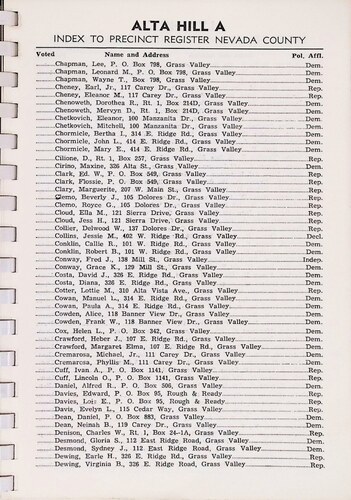 ALTA HILL A
INDEX TO PRECINCT REGISTER NEVADA COUNTY
Voted Name and Address Pol. Affl.
Chapman, Lee, P. O. Box 798, Grass Valley Dem.
Chapman, Leonard M., P. O. Box 798, Grass Valley Dem.
Chapman, Wayne T., Box 798, Grass Valley Dem.
Cheney, Earl, Jr., 117 Carey Dr., Grass Valley Rep.
Cheney, Eleanor M., 117 Carey Dr., Grass Valley Rep.
Chenoweth, Dorothea R., Rt. 1, Box 214D, Grass Valley Dem.
Chenoweth, Mervyn D., Rt. 1, Box 214D, Grass Valley Dem.
Chetkovich, Eleanor, 100 Manzanita Dr., Grass Valley Dem.
Chetkovich, Mitchell, 100 Manzanita Dr., Grass Valley Dem.
Chormicle, Bertha I., 314 E. Ridge Rd., Grass Valley Dem.
Chormicle, John L., 414 E. Ridge Rd., Grass Valley Dem.
Chormicle, Mary E., 414 E. Ridge Rd., Grass Valley Dem.
Cilione, D., Rt. 1, Box 257, Grass Valley Rep.
Cirino, Maxine, 326 Alta St., Grass Valley Dem.
Clark, Ed. W., P. O. Box 549, Grass Valley Rep.
Clark, Flossie, P. O. Box 549, Grass Valley Rep.
Clary, Marguerite, 207 W. Main St., Grass Valley Rep.
Clemo, Beverly J., 105 Dolores Dr., Grass Valley Rep.
Clemo, Royce G., 105 Dolores Dr., Grass Valley Rep.
Cloud, Ella M., 121 Sierra Drive, Grass Valley Rep.
Cloud, Jess H., 121 Sierra Drive, Grass Valley Rep.
Collier, Delwood W., 137 Dolores Dr., Grass Valley Rep.
Collins, Jessie M., 402 W. Ridge Rd., Grass Valley Decl.
Conklin, Callie R., 101 W. Olympia, Grass Valley Dem.
Conklin, Robert B., 101 W. Olympia, Grass Valley Dem.
Conway, Fred J., 138 Mill St., Grass Valley Indep.
Conway, Grace K., 129 Mill St., Grass Valley Dem.
Costa, David J., 326 E. Ridge Rd., Grass Valley Dem.
Costa, Diana, 326 E. Ridge Rd., Grass Valley Dem.
Cotter, Lottie M., 310 Alta Vista Ave., Grass Valley Rep.
Cowan, Manuel L., 314 E. Ridge Rd., Grass Valley Dem.
Cowan, Paula A., 314 E. Ridge Rd., Grass Valley Dem.
Cowden, Alice, 118 Banner View Dr., Grass Valley Dem.
Cowden, Frank W., 118 Banner View Dr., Grass Valley Dem.
Cox, Helen L., P. O. Box 342, Grass Valley Dem.
Crawford, Heber J., 107 E. Ridge Rd., Grass Valley Dem.
Crawford, Margaret Elma, 107 E. Ridge Rd., Grass Valley Dem.
Cremarosa, Michael, Jr., 111 Carey Dr., Grass Valley Dem.
Cremarosa, Phyllis M., 111 Carey Dr., Grass Valley Dem.
Cuff, Ivan A., P. O. Box 1141, Grass Valley Rep.
Cuff, Lincoln O., P. O. Box 1141, Grass Valley Rep.
Daniel, Alfred R., P. O. Box 506, Grass Valley Dem.
Davies, Edward, P. O. Box 95, Rough & Ready Rep.
Davies, E., P. O. Box 95, Rough & Ready Rep.
Davis, Evelyn L., 115 Cedar Way, Grass Valley Rep.
Dean, Daniel, P. O. Box 883, Grass Valley Dem.
Dean, Neimah B., 119 Carey Dr., Grass Valley Dem.
Denison, Charles W., Rt. 1, Box 24-1A, Grass Valley Rep.
Desmond, Gloria S., 112 East Ridge Road, Grass Valley Dem.
Desmond, Sydney J., 112 East Ridge Road, Grass Valley Dem.
Dewing, Earle H., 326 E. Ridge Rd., Grass Valley Rep.
Dewing, Virginia B., 326 E. Ridge Road, Grass Valley Rep.